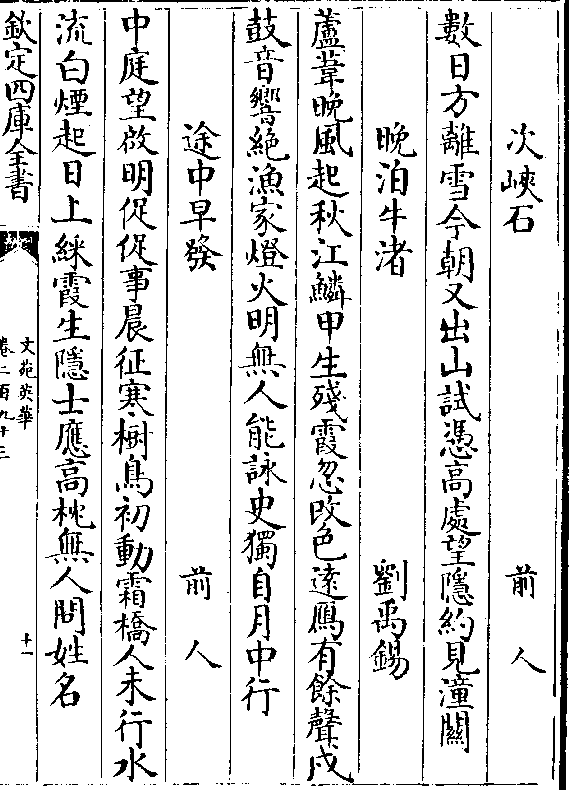 次峽石　前人
數日方離雪今朝又出山試憑高處望隱約見潼關
晚泊牛渚　劉禹錫
蘆葦晚風起秋江鱗甲生殘霞忽改色遠鴈有餘聲戍
鼓音響絶漁家燈火明無人能詠史獨自月中行
途中早發　前人
中庭望啟明促促事晨征寒樹鳥初動霜橋人未行水
流白煙起日上綵霞生隱士應高枕無人問姓名
欽定四庫全書
文苑英華
卷二百九十三
十一